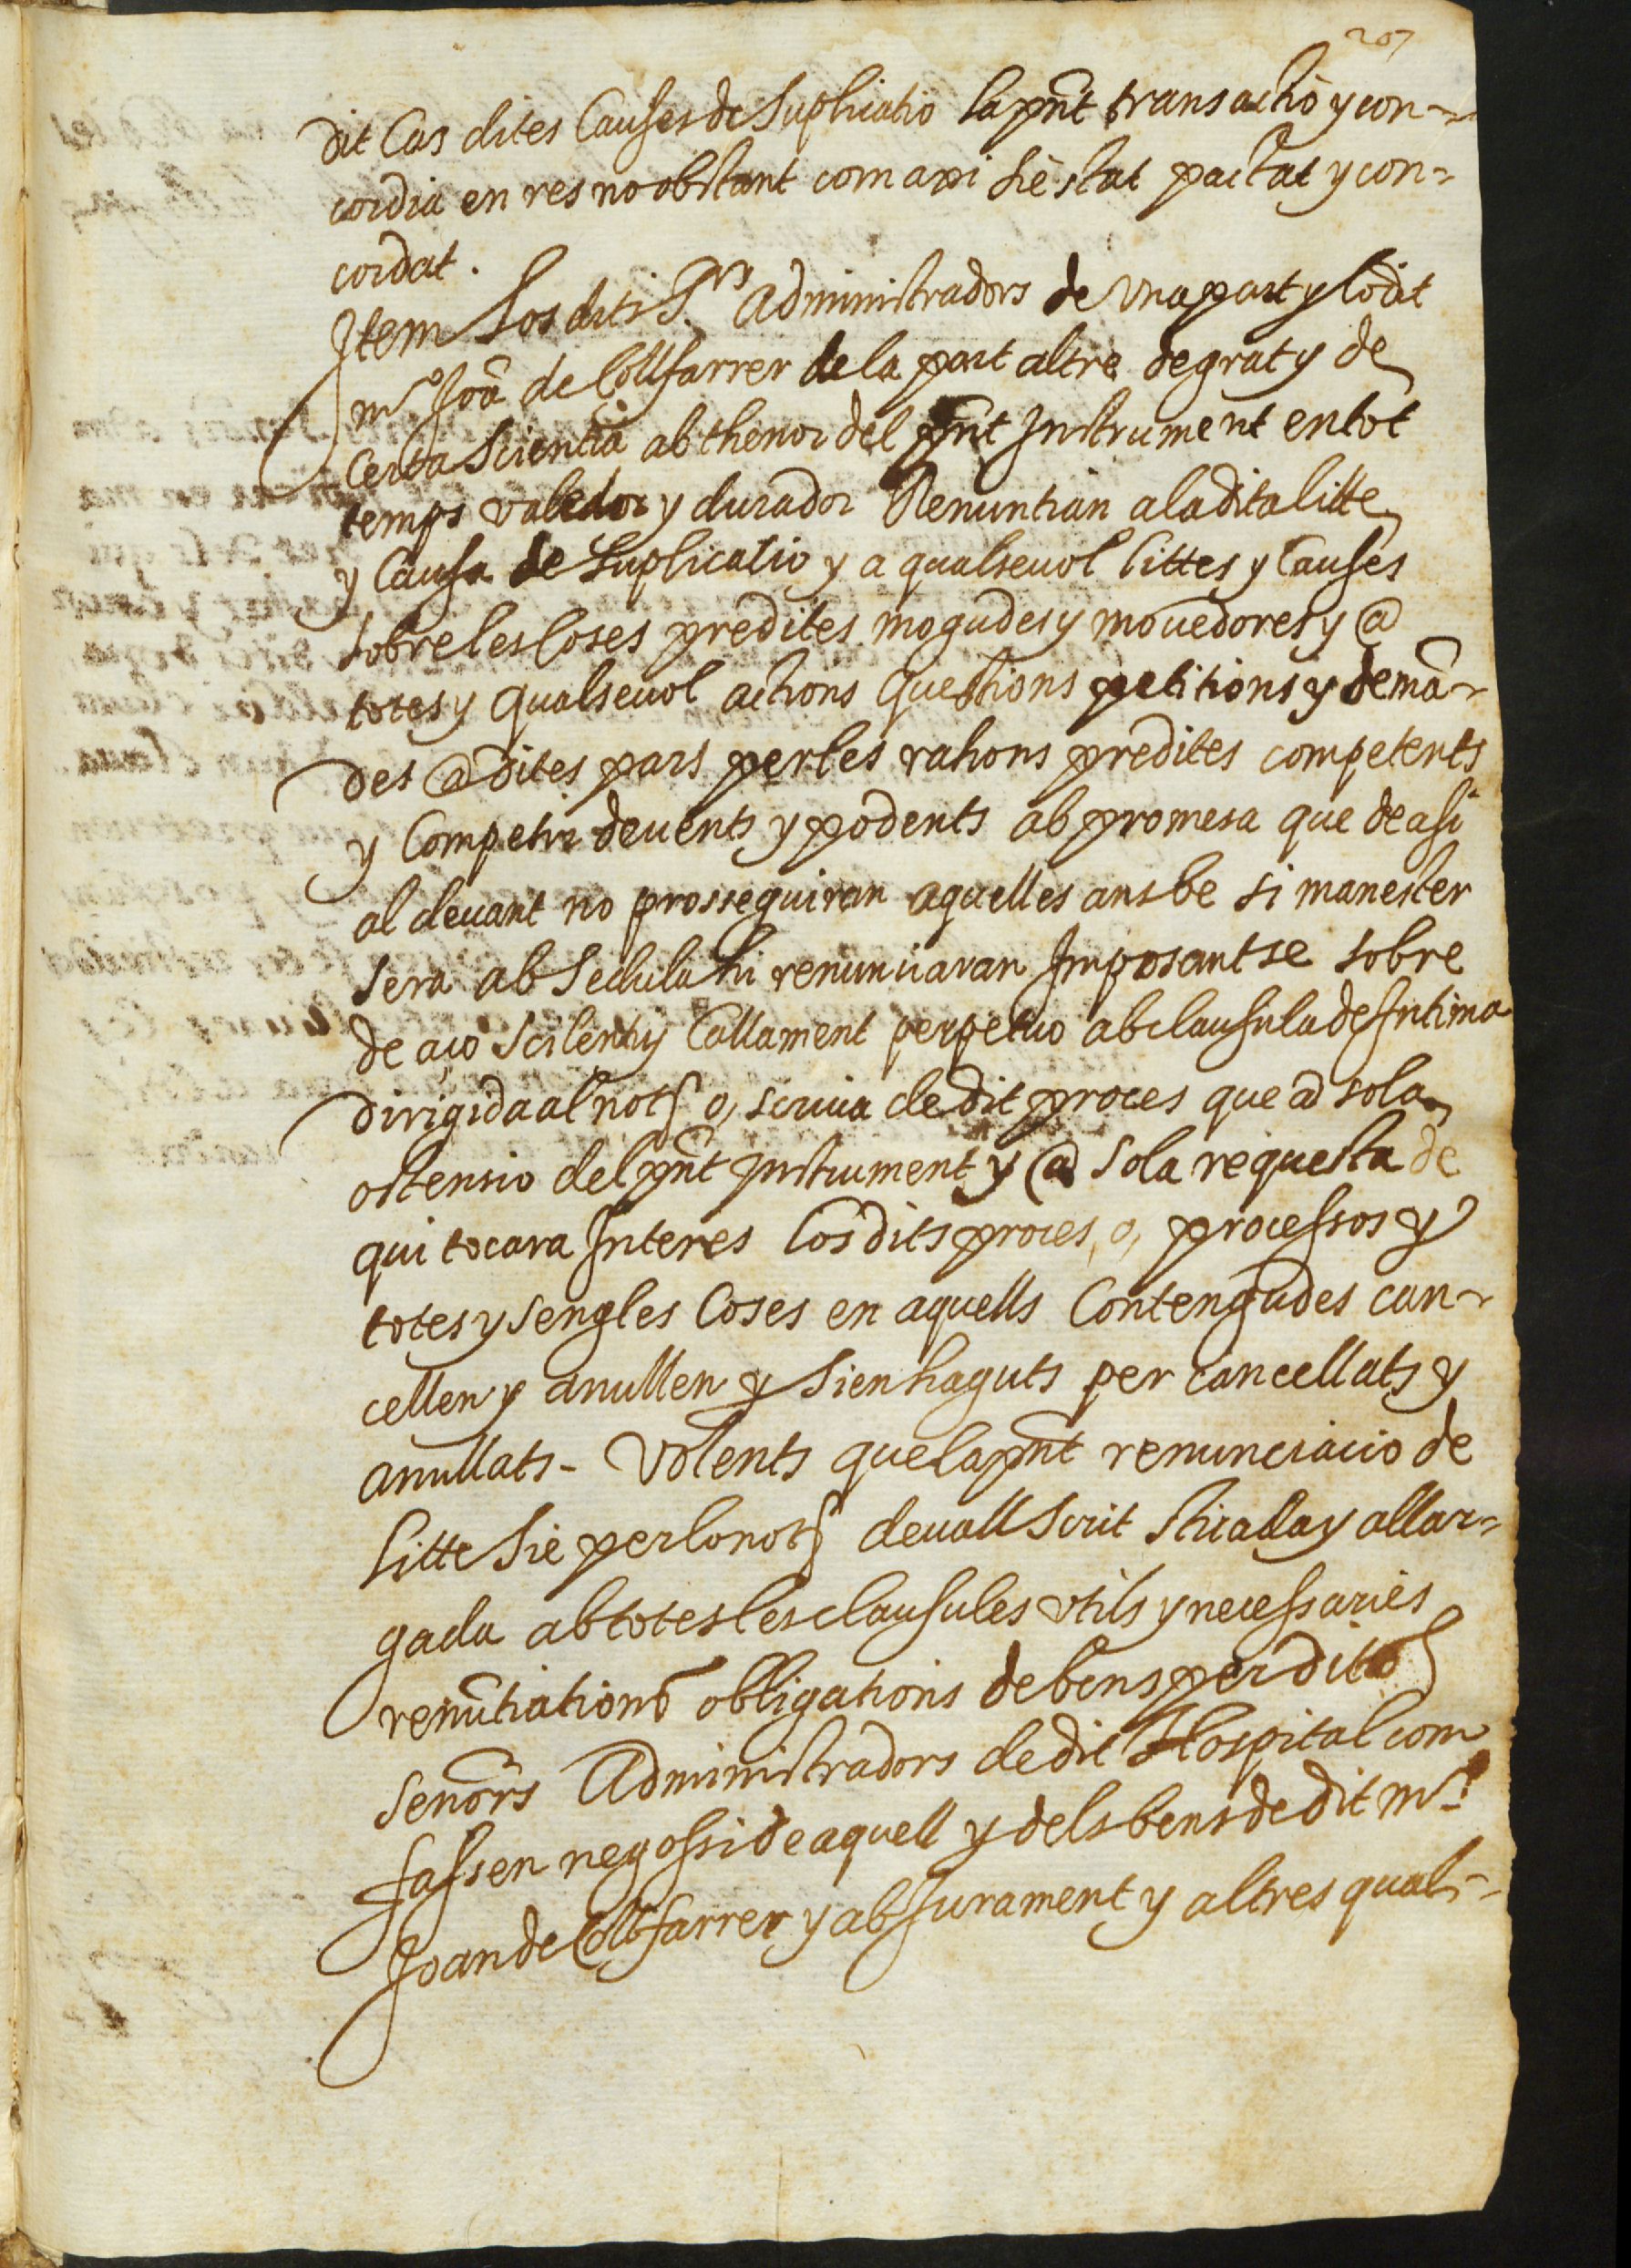 207
dit Cas dites Causes de Suplicatio la pnt transactio y con-
cordia en res no obstant com axi sie stat pactat y con-
cordat.
Item los dits Srs Administradors de una part y lo dit
mr Joā de Collfarrer de la part altre de grat y de
Certa Scientia ab thenor del pnt Instrument en tot
temps valedor y durador Renuntian a la dita litte
y Causa de Suplicatio y a qualsevol littes y Causes
sobre les Coses predites mogudes y mouedores y a
totes y qualseuol actions questions petitions y demā-
des a dites pars per les rahons predites competents
y Competir deuents y podents ab promesa que de asi
al deuant no prosseguiran aquelles ans be si manester
sera ab Sedula hi renunciaran Imposantse sobre
de aço Scilenti y Callament perpetuo ab clausula de Intima
dirigida al not o, scriua de dit proces que a sola
ostensio del pnt Instrument y a sola requesta de
qui tocara Interes los dits proces, o, processos y
totes y sengles Coses en aquells Contengudes can-
cellen y anullen y sien haguts per cancellats y
anullats - Volents que la pnt renunciacio de
litte sie per lo not deuall scrit stirada y allar-
gada ab totes les clausules utils y necessaries
renūtiations obligations de bens per dits
senōrs Administradors de dit Hospital com
fassen negossi de aquell y dels bens de dit mr
Joan de Collfarrer y ab Jurament y altres quals-